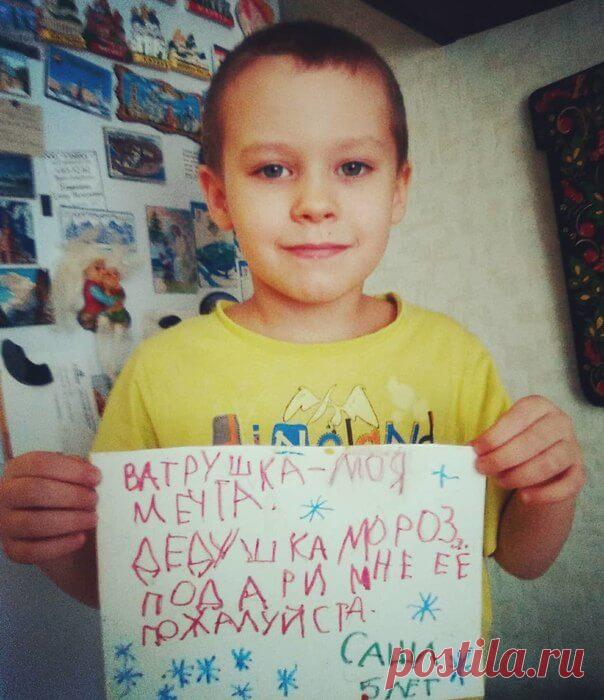 ВАТРУШКА-МОЯ
МЕЧТА!
ДЕДУШКА МОРОЗ,
ПОДАРИ МНЕ ЕЁ
ПОЖАЛУЙСТА.
САША,
5 ЛЕТ
postila.ru